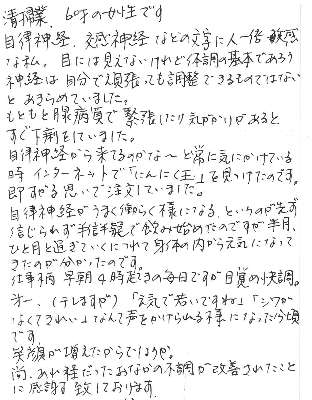 清掃業、60才の女性です
自律神経、交感神経などの文字に人一倍敏感
な私。目には見えないけれど体調の基本であろう
神経は自分で頑張っても調整できるものではない
とあきらめていました。
もともと胃腸病質で緊張したり気がかりがあると
すぐ下痢をしていました。
自律神経から来てるのかな〜と常に気にかけている
時インターネットで「にんにく玉」を見つけたのです。
即すがる思いで注文していました。
自律神経がうまく働らく様になる、というのが先ず
信じられず半信半疑で飲み始めたのですが半月、
ひと月と過ぎていくにつれて身体の内から元気になって
きたのが分かったのです。
仕事柄 早朝4時起きの毎日ですが目覚め快調。
オー、(テレますが)「元気で若いですね」「シワが
なくてきれい」なんて声をかけられる様になった今頃
です。
笑顔が増えたからでしょうか。
尚、あれ程だったおなかの不調が改善されたこと
に感謝を致しております。